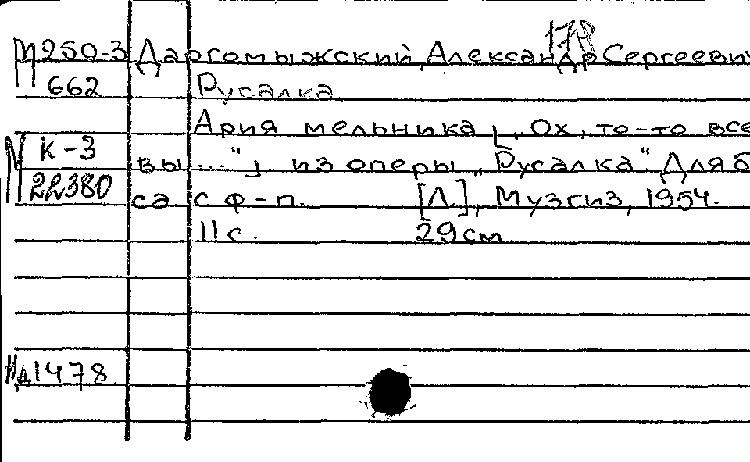 178
М250-3 Даргомыжский, Александр Сергеевич
662 Русалка
Ария мельника [„Ох, то-то все
К-3 вы..."] из оперы „Русалка" Для б
22380 са с ф-п. [Л.], Музгиз, 1954.
11 с. 29 см
1478